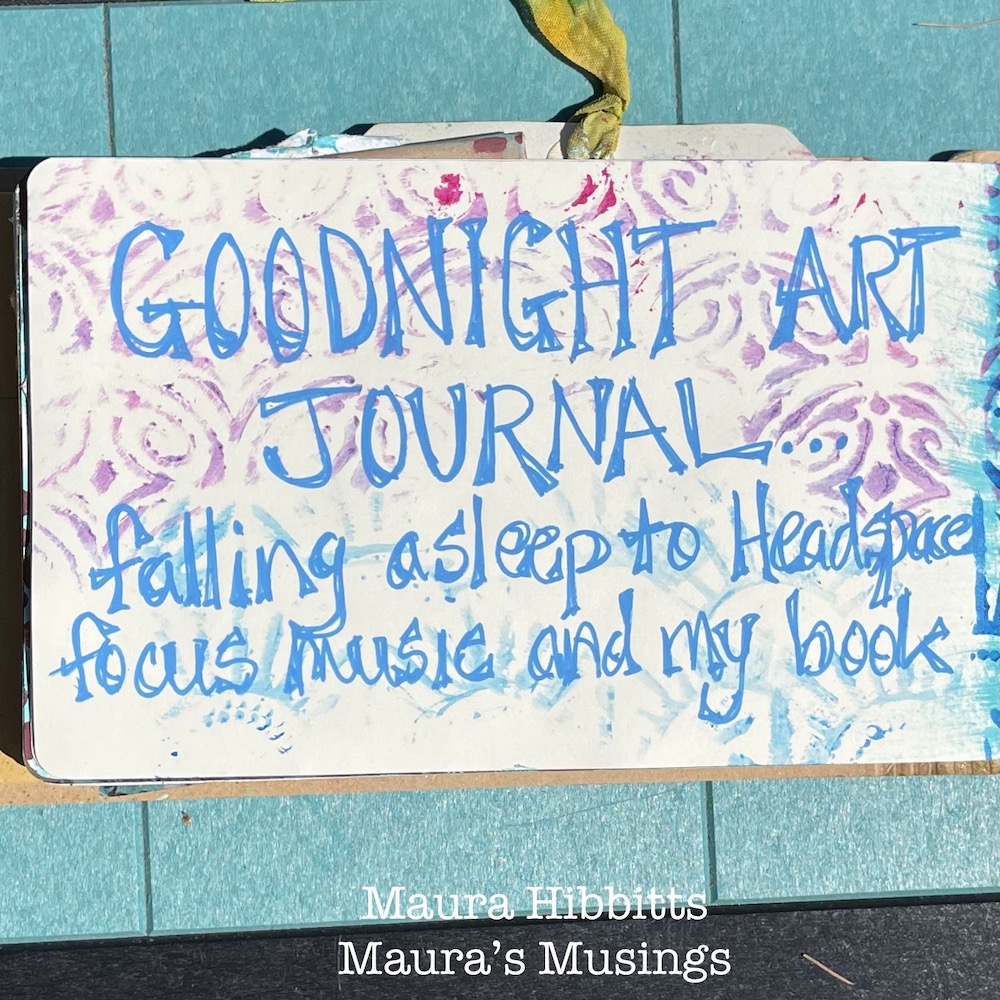 GOODNIGHT ART
JOURNAL...
falling asleep to Headspace
focus music and my book
Maura Hibbitts
Maura's Musings